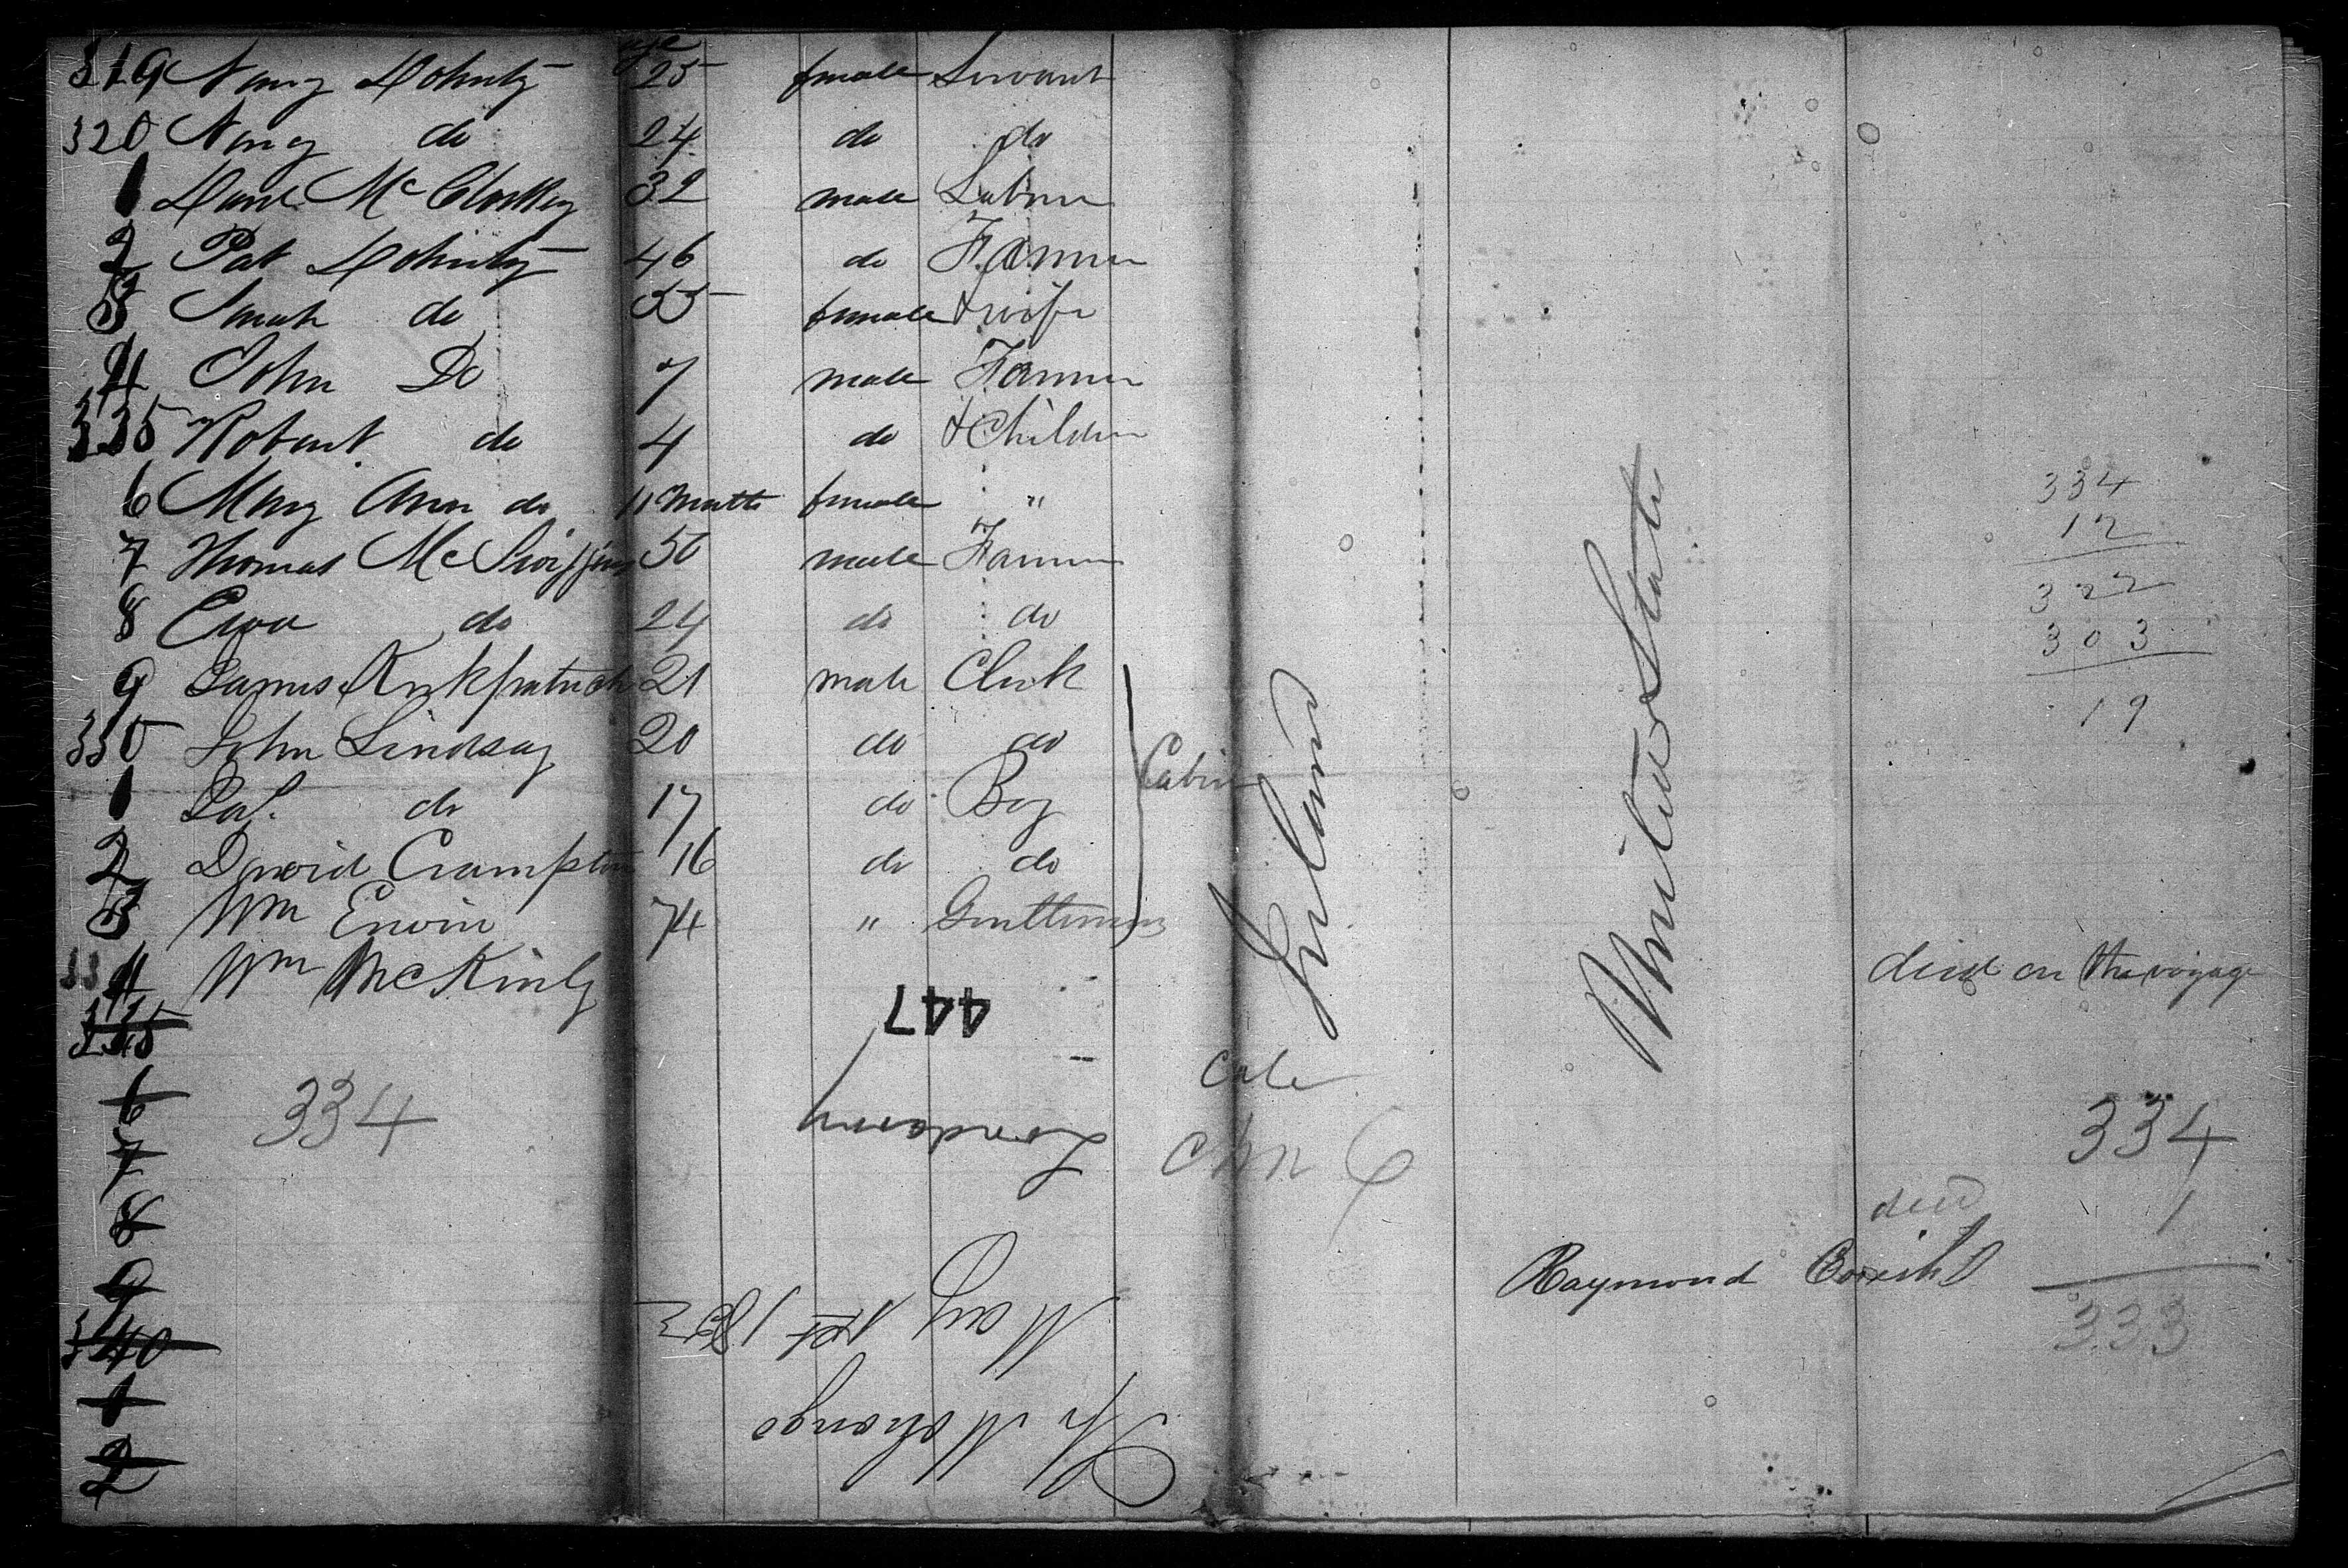 age
319 Nancy Doherty 25 female Servant
320 Nancy do 24 do do
1 Danl Mc Closkey 32 male Labrer
2 Pat Doherty 46 do Farmer
3 Sarah do 35 female & wife
4 John Do 7 male Farmer
325 Robert do 4 do & Children
6 Mary Ann do 11 Months female "
7 Thomas Mc 50 male Farmer
8 do 24 do do
9 James Kirkpatrick 21 male Clerk
330 John Lindsay 20 do do
1 Jas. do 17 do Boy
Cabin
2 David Crampton 16 do do
3 Wm Erwin 74 " Gentleman
334 Wm McKinly died on the voyage
335
6
7
8
9
340
1
2
334
Ireland
United States
334
12
322
303
19
447
Londonderry
May 1st 1853
Sh Mohongo
334
died 1
333
Raymond